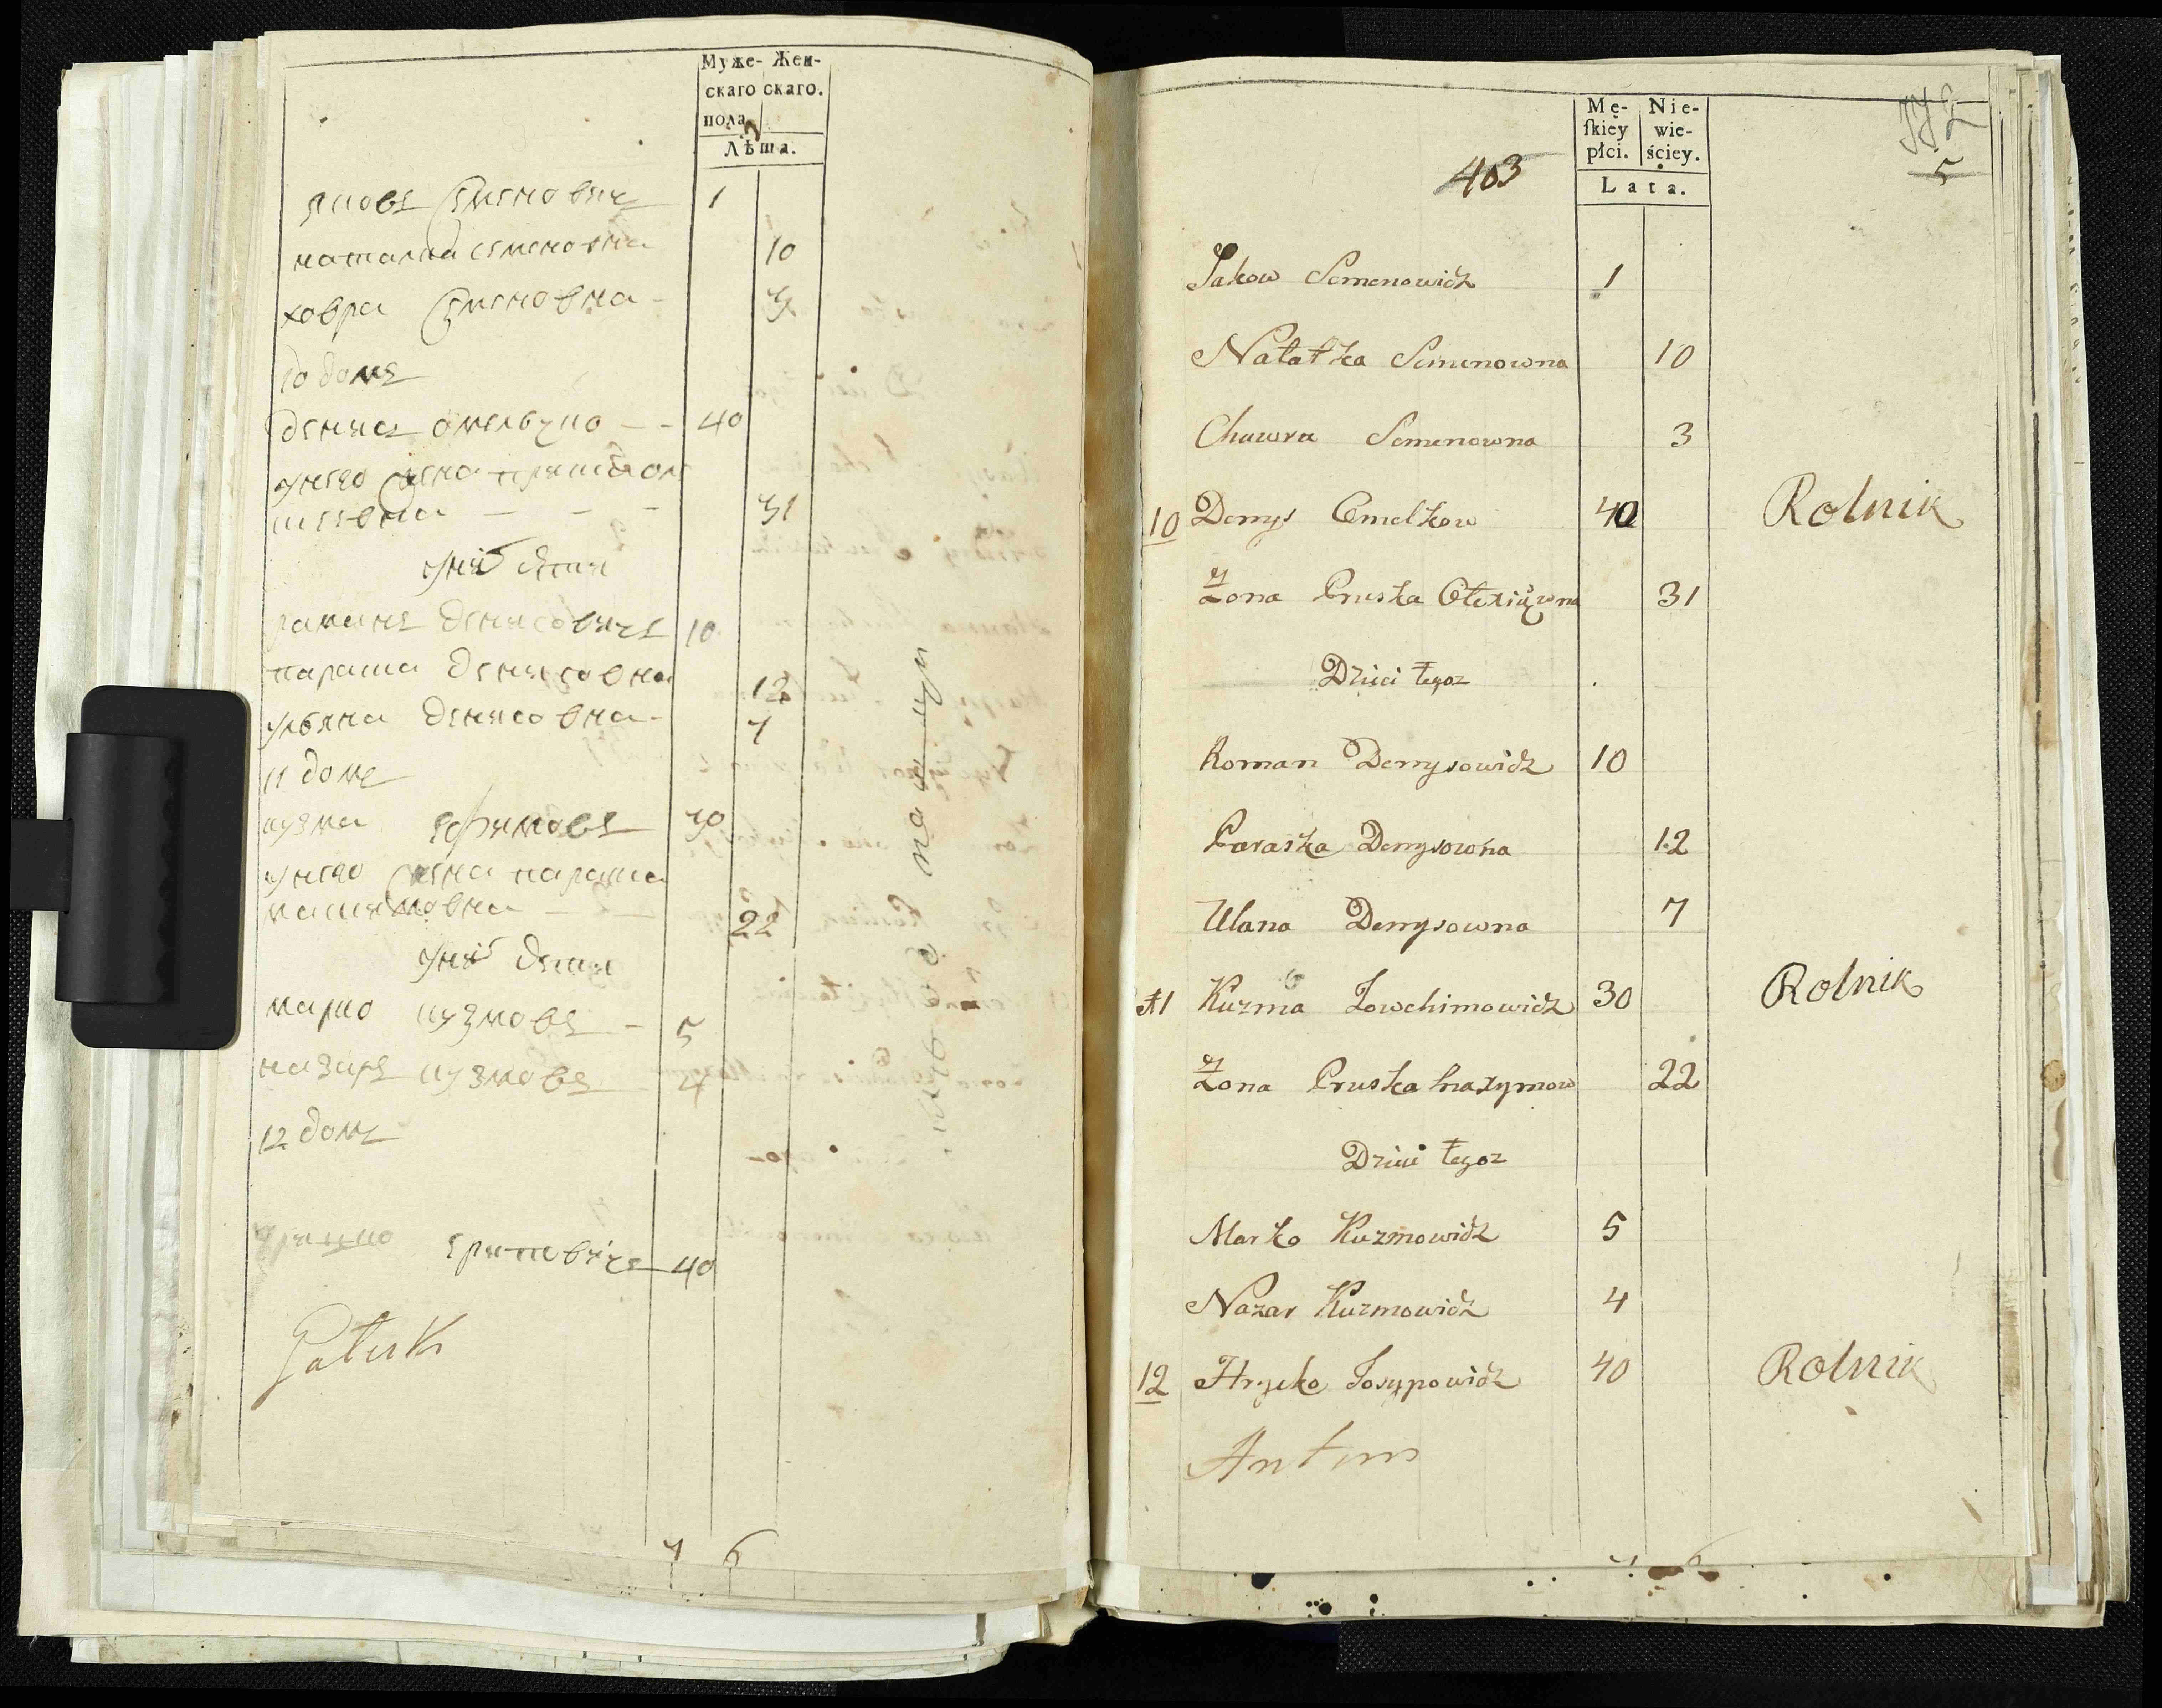 Муже- Жен-
скаго скаго.
пола
Лѣта.
яковъ Семеновичъ 1
наталка семеновна 10
ховра Семеновна 3
10 домъ
денисъ омелько 40
унего жена
31
унихъ дети
раманъ денисовичъ 10
параша денисовна 12
ульяна денисовна 7
11 домъ
кузма ефимовъ 30
унего жена параша
максимовна 22
унихъ дети
марко кузмовъ 5
назаръ кузмовъ 4
12 домъ
грицко 40
7 6
Mę- Nie-
ſkiéy wie-
płci. ściey.
Lata.
403
5
Jakow Semenowicz 1
Natałka Semenowna 10
Chawra Semenowna 3
10 Denys Omelkow 40 Rolnik
Zona Pruska 31
Dzieci tegoz
Roman Denysowicz 10
Paraska Denysowna 12
Ulana Denysowna 7
11 Kuzma Jowchimowicz 30 Rolnik
Zona Pruska Maxymow 22
Dzieci tegoz
Marko Kuzmowicz 5
Nazar Kuzmowicz 4
12 Hrycko Josypowicz 40 Rolnik